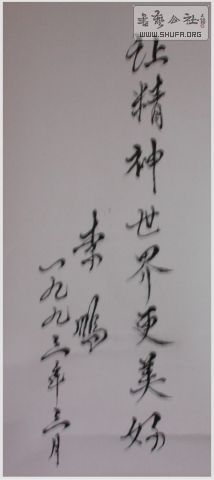 书艺公社
WWW.SHUFA.ORG
让精神世界更美好
李鹏
一九九三年三月